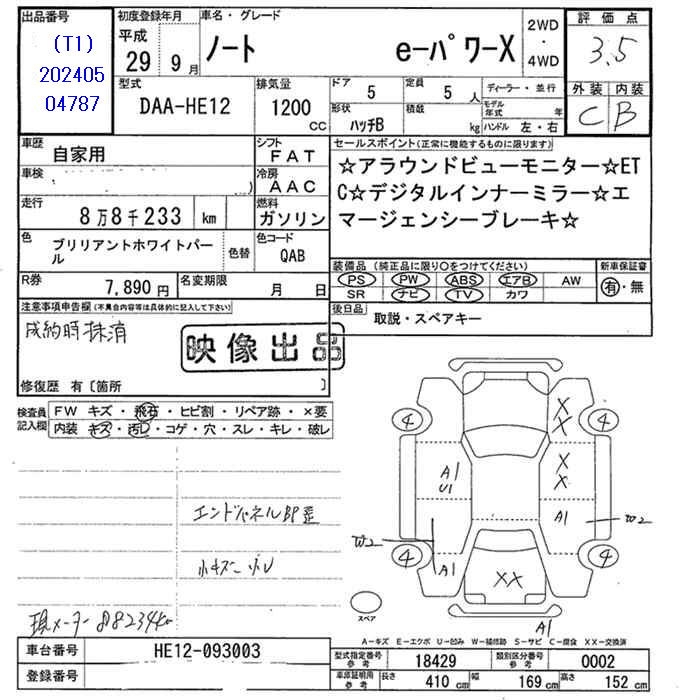 出品番号
(T1)
202405
04787
初度登録年月
平成
29 9月
車名・グレード
ノート e-パワーX
2WD
・
4WD
評価点
3.5
外装 内装
C B
型式
DAA-HE12
排気量
1200
CC
ドア 5
定員 5人
ディーラー・並行
形状
ハッチB
積載
kg
モデル
年式 年
ハンドル 左・右
車歴
自家用
シフト
FAT
セールスポイント(正常に機能するものに限ります)
☆アラウンドビューモニター☆ET
C☆デジタルインナーミラー☆エ
マージェンシーブレーキ☆
車検
冷房
AAC
走行
8万8千233 km
燃料
ガソリン
色
ブリリアントホワイトパー
ル
色替
色コード
QAB
R券
7,890円
名変期限
月 日
装備品(純正品に限り○をつけてください)
PS PW ABS エアB AW
SR ナビ TV カワ
新車保証書
有・無
注意事項申告欄(不具合内容等は具体的に記入して下さい)
成約時抹消
後日品
取説・スペアキー
映像出品
修復歴 有〔箇所 〕
検査員
記入欄
FW キズ・飛石・ヒビ割・リペア跡・×要
内装 キズ・汚レ・コゲ・穴・スレ・キレ・破レ
エンドパネルBP歪
小キズ小U
現メーター88234km
4 4
X
X
X
X
A1
U1
A1
W2
W2
4 4
A1
XX
スペア
A1
A-キズ E-エクボ U-凹み W-補修跡 S-サビ C-腐食 XX-交換済
車台番号
HE12-093003
登録番号
型式指定番号
参考
18429
類別区分番号
参考
0002
車庫証明用
参考
長さ 410 cm
幅 169 cm
高さ 152 cm